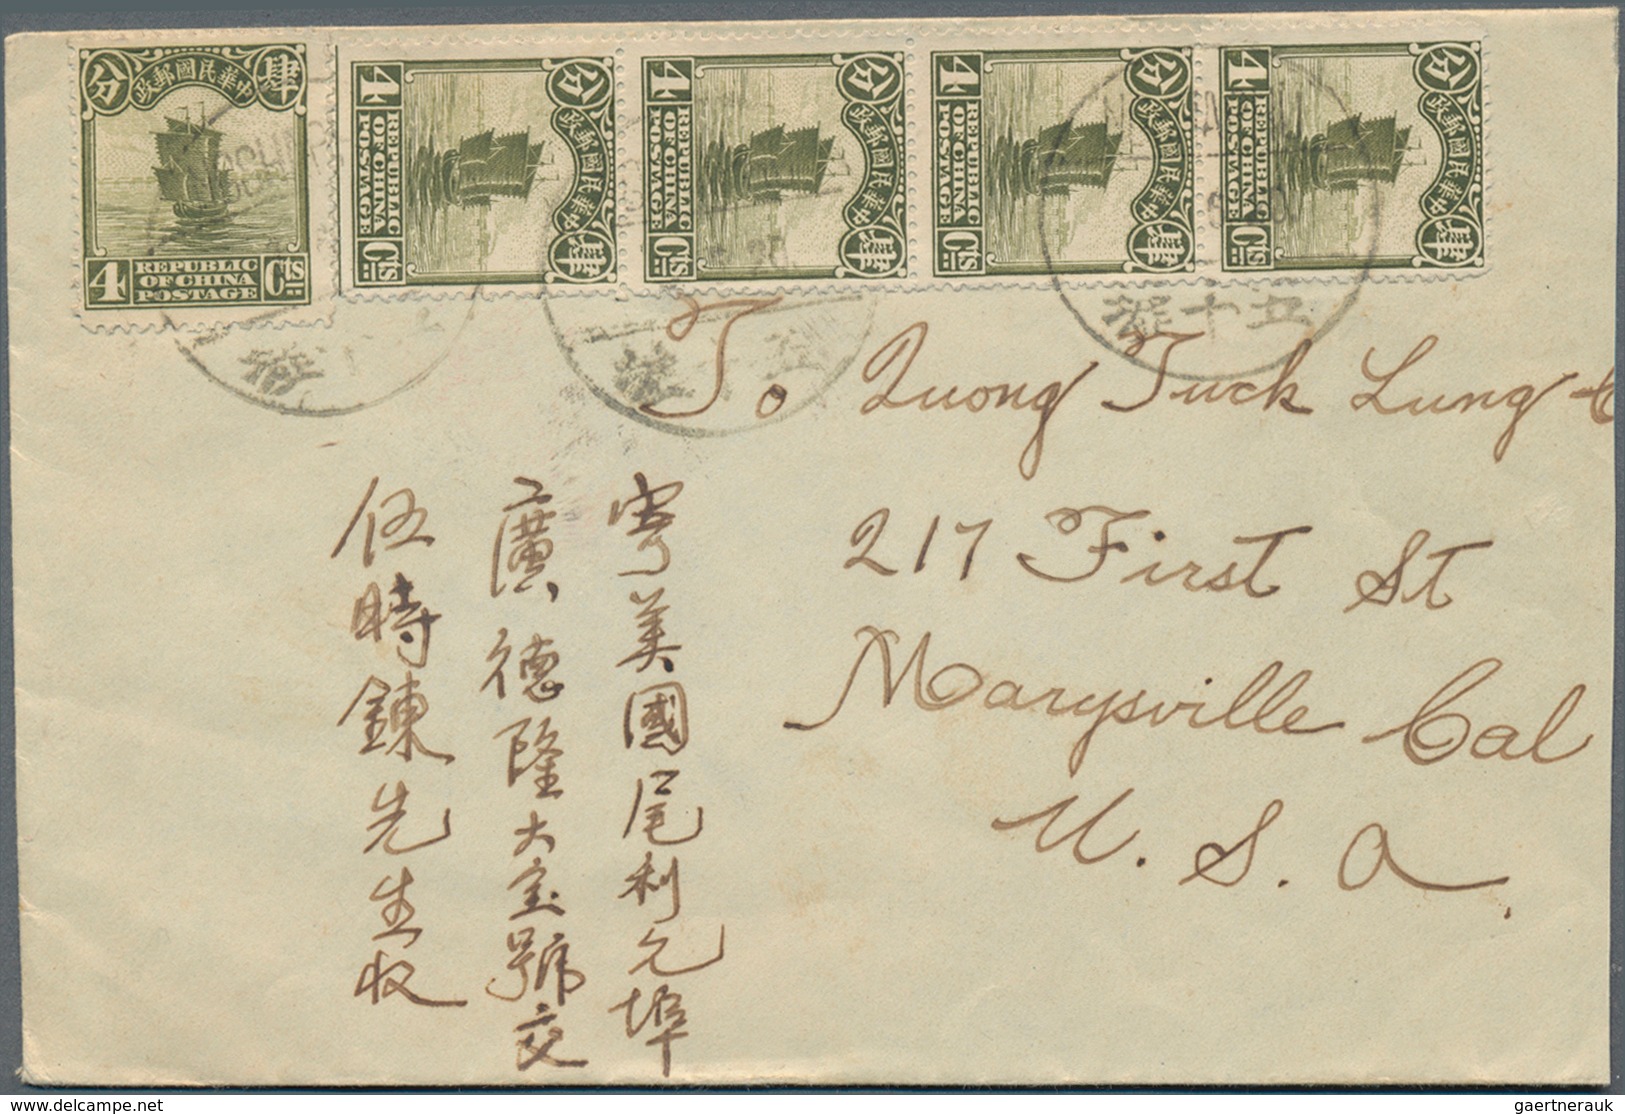 肆 中華民國郵政 分
4 REPUBLIC OF CHINA POSTAGE Cts
分 中華民國郵政 肆
4 REPUBLIC OF CHINA POSTAGE Cts
分 中華民國郵政 肆
4 REPUBLIC OF CHINA POSTAGE Cts
分 中華民國郵政 肆
4 REPUBLIC OF CHINA POSTAGE Cts
分 中華民國郵政 肆
4 REPUBLIC OF CHINA POSTAGE Cts
To Quong Tuck Lung
217 First St
Marysville Cal
U. S. A.
寄美國尾利允埠
廣德隆大宝號交
伍時鍊先生收
gaertnerauk